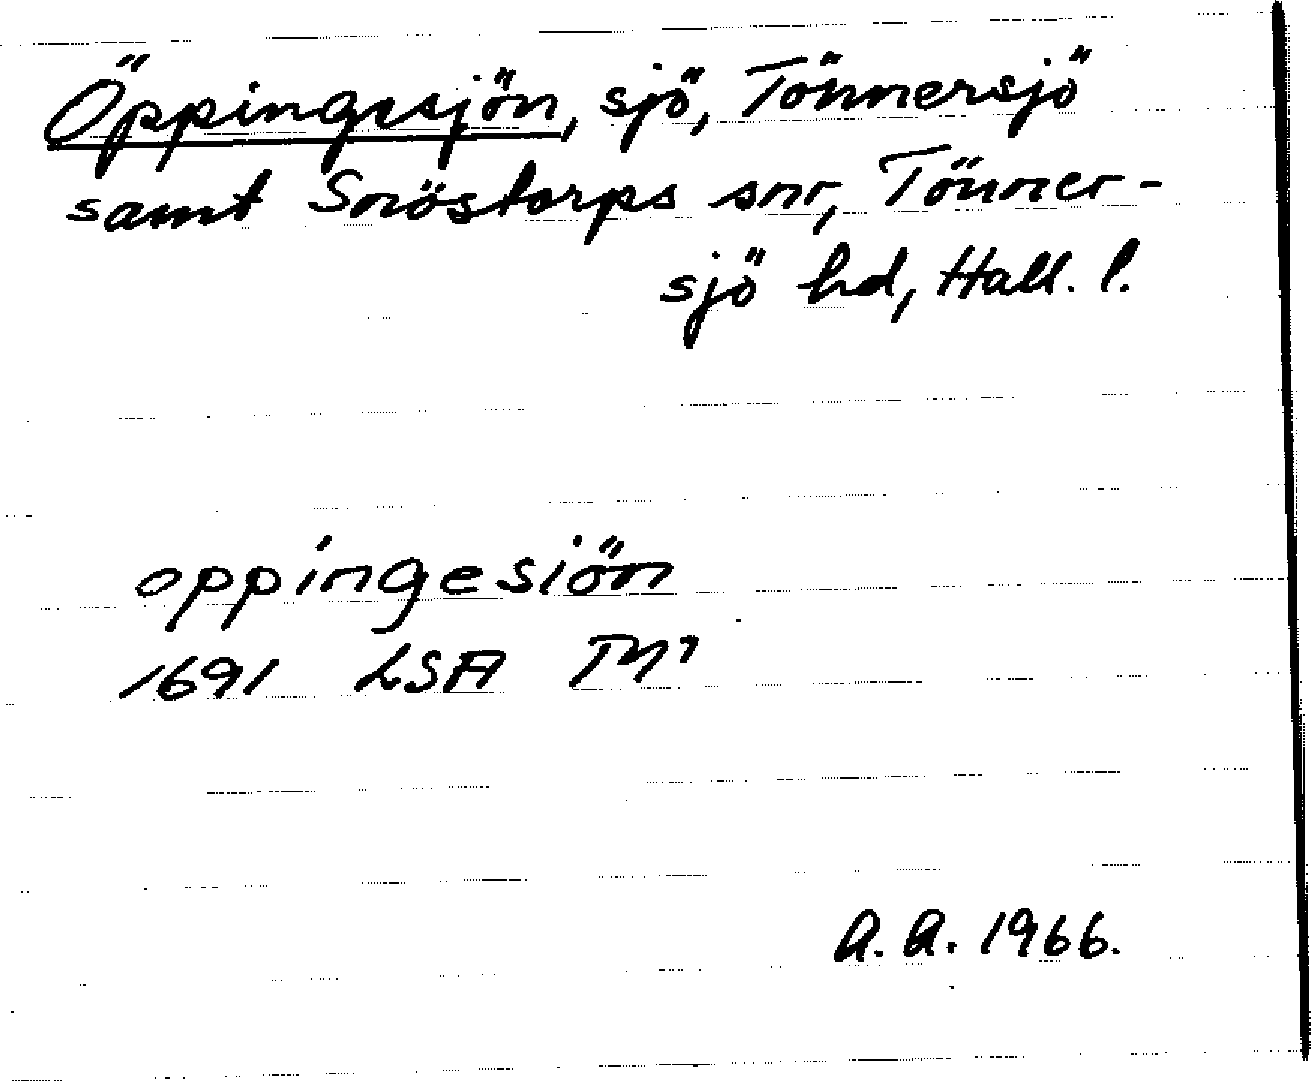 Öppingesjön, sjö, Tönnersjö
samt Snöstorps snr, Tönner-
sjö hd, Hall. l.
oppingesiön
1691 LSA
A.A. 1966.